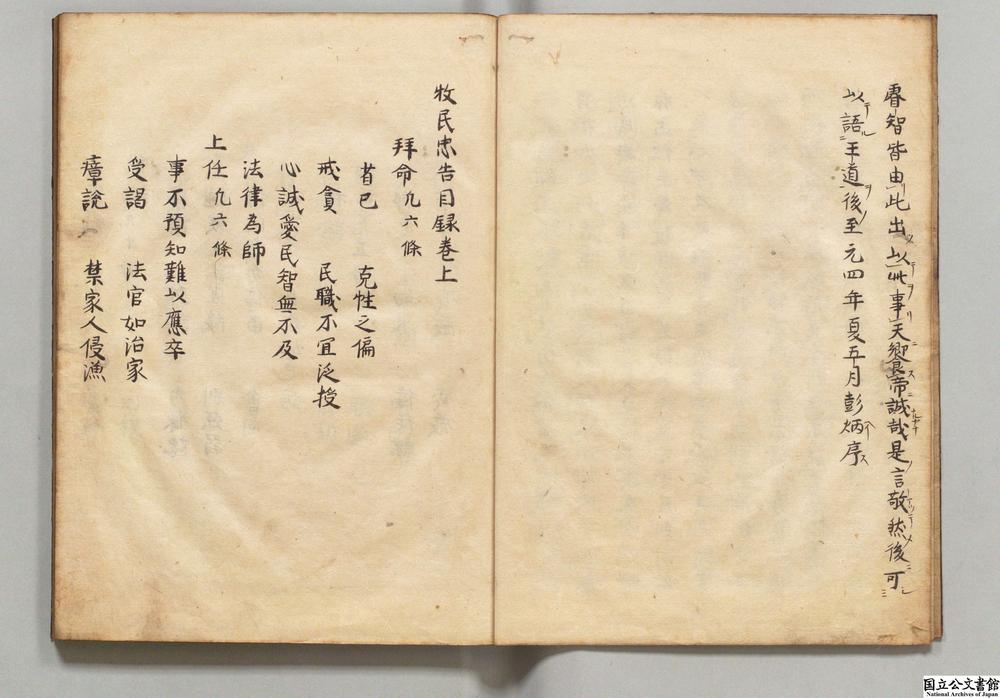 睿智皆由此出以此事天饗帝誠哉是言敬然後可
以語王道後至元四年夏五月彭炳序
牧民忠告目録巻上
拜命凢六條
省己 克性之偏
戒貪 民職不冝泛授
心誠愛民智無不及
法律為師
上任凢六條
事不預知難以應卒
受謁 法官如治家
瘴説 禁家人侵漁
国立公文書館
National Archives of Japan